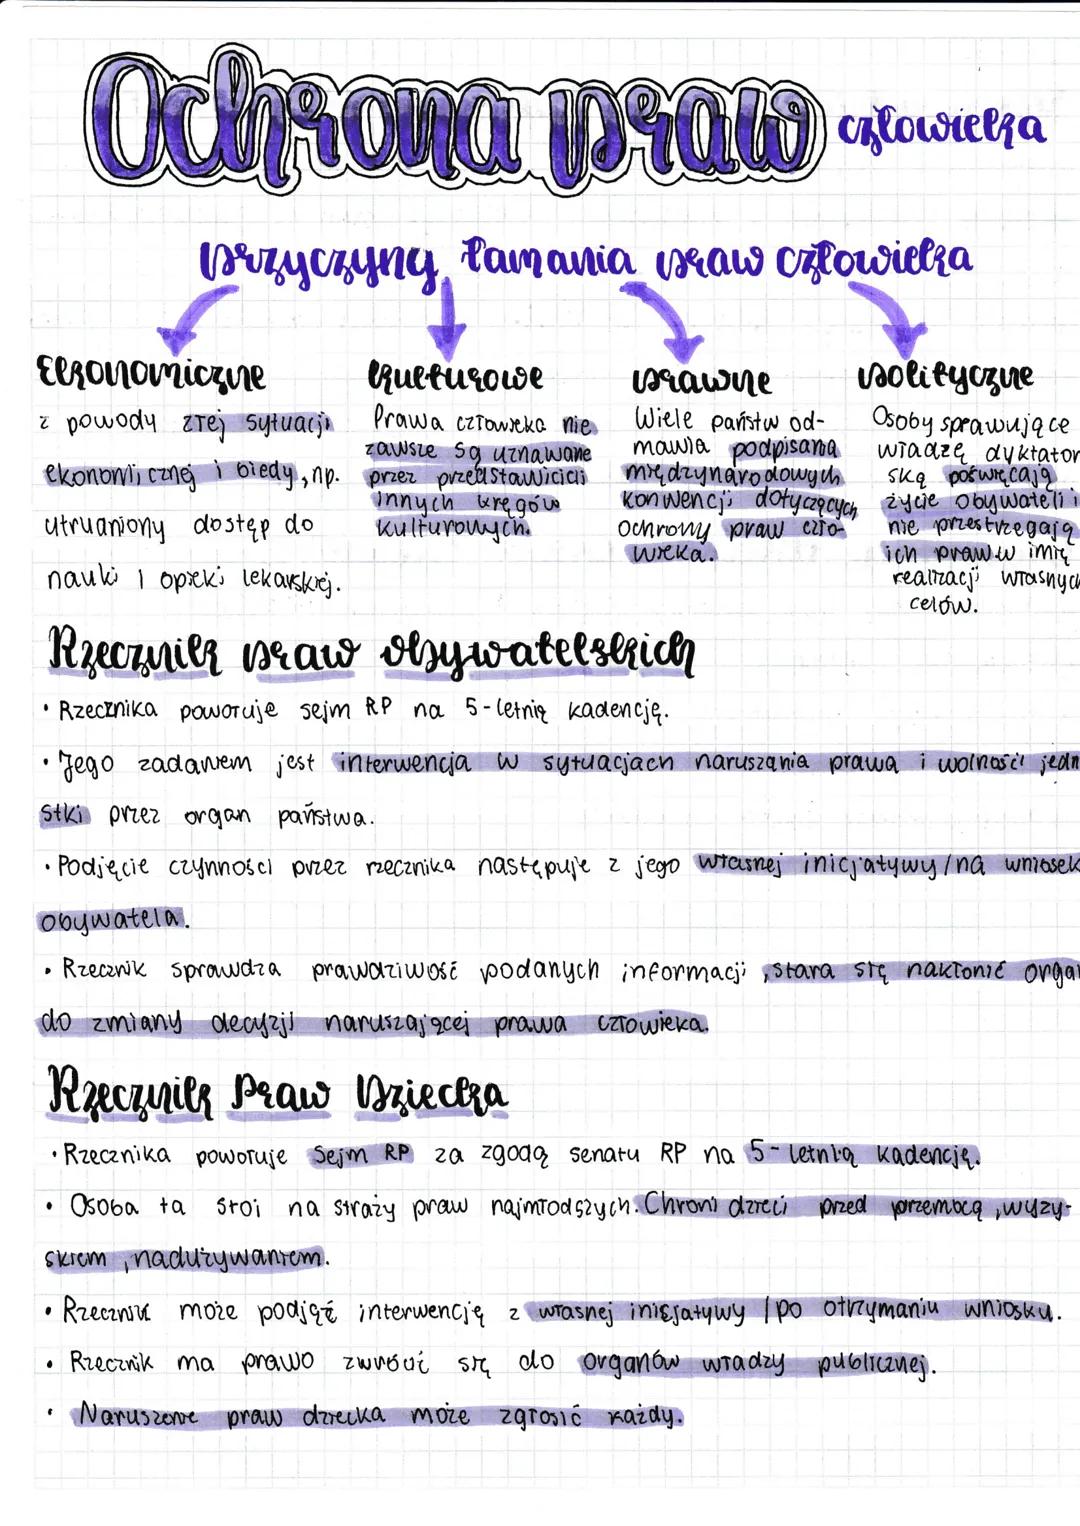 Ochrona praw człowieka
przyczyny łamania praw człowieka
Ekonomiczne
z powody złej sytuacji
ekonomicznej i biedy, np.
utrudniony dostęp do
nauki i opieki lekarskiej.
kulturowe
Prawa człowieka nie
zawsze są uznawane
przez przedstawicieli
innych kręgów
kulturowych.
prawne
Wiele państw od-
mawia podpisania
międzynarodowych
konwencji dotyczących
ochrony praw czło-
wieka.
polityczne
Osoby sprawujące
władzę dyktator
ską poświęcają
życie obywateli i
nie przestrzegają
ich praw w imię
realizacji własnych
celów.
Rzecznik praw obywatelskich
• Rzecznika powołuje sejm RP na 5-letnią kadencję.
• Jego zadaniem jest interwencja w sytuacjach naruszania prawa i wolności jedn
stki przez organ państwa.
• Podjęcie czynności przez rzecznika następuje z jego własnej inicjatywy/na wniosek
obywatela.
• Rzecznik sprawdza prawdziwość podanych informacji, stara się nakłonić organ
do zmiany decyzji naruszającej prawa człowieka.
Rzecznik Praw Dziecka
• Rzecznika powołuje Sejm RP za zgodą senatu RP na 5-letnią kadencję.
• Osoba ta stoi na straży praw najmłodszych. Chroni dzieci przed przemocą, wyzy-
skiem, nadużywaniem.
• Rzecznik może podjąć interwencję z własnej inicjatywy / po otrzymaniu wniosku.
• Rzecznik ma prawo zwrócić się do organów władzy publicznej.
• Naruszenie praw dziecka może zgłosić każdy.